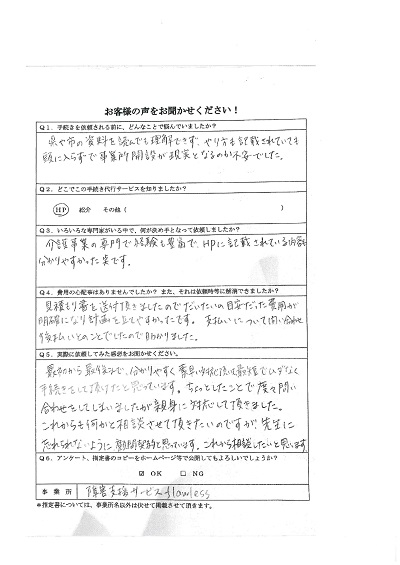 お客様の声をお聞かせください！
Q１．手続きを依頼される前に、どんなことで悩んでいましたか？
県や市の資料を読んでも理解できず、やり方も記載されていても
頭に入らずで事業所開設が現実となるのか不安でした。
Q２．どこでこの手続き代行サービスを知りましたか？
HP 紹介 その他（ ）
Q３．いろいろな専門家がいる中で、何が決め手となって依頼しましたか？
介護事業の専門で経験も豊富で、HPに記載されている内容も
分かりやすかった点です。
Q４．費用の心配事はありませんでしたか？ また、それは依頼時等に解消できましたか？
見積もり書を送付頂きましたのでだいたいの目安だった費用が
明確になり計画を立てやすかったです。支払いについて問い合わせ
後払いとのことでしたので助かりました。
Q５．実際に依頼してみた感想をお聞かせください。
最初から最後まで、分かりやすく
手続きをして頂けたと思っています。ちょっとしたことで度々問い
合わせをしてしまいましたが親身に対応して頂きました。
これからも何かと相談させて頂きたいのですが先生に
忘れられないように と思っています。これから相談したいと思います
Q６．アンケート、指定書のコピーをホームページ等で公開してもよろしいでしょうか？
☑ OK □ NG
事業所 障害支援サービス flawless
＊指定書については、事業所名以外は伏せて掲載させて頂きます。